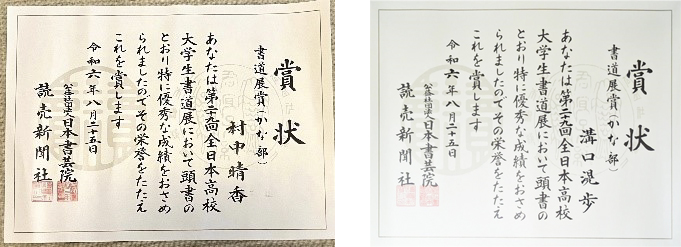 賞状
書道展賞(かな部)
村中晴香
あなたは第二十九回全日本高校
大学生書道展において頭書の
とおり特に優秀な成績をおさめ
られましたのでその栄誉をたたえ
これを賞します
令和六年八月二十五日
公益社団法人日本書芸院
読売新聞社
賞状
書道展賞(かな部)
溝口滉歩
あなたは第二十九回全日本高校
大学生書道展において頭書の
とおり特に優秀な成績をおさめ
られましたのでその栄誉をたたえ
これを賞します
令和六年八月二十五日
公益社団法人日本書芸院
読売新聞社